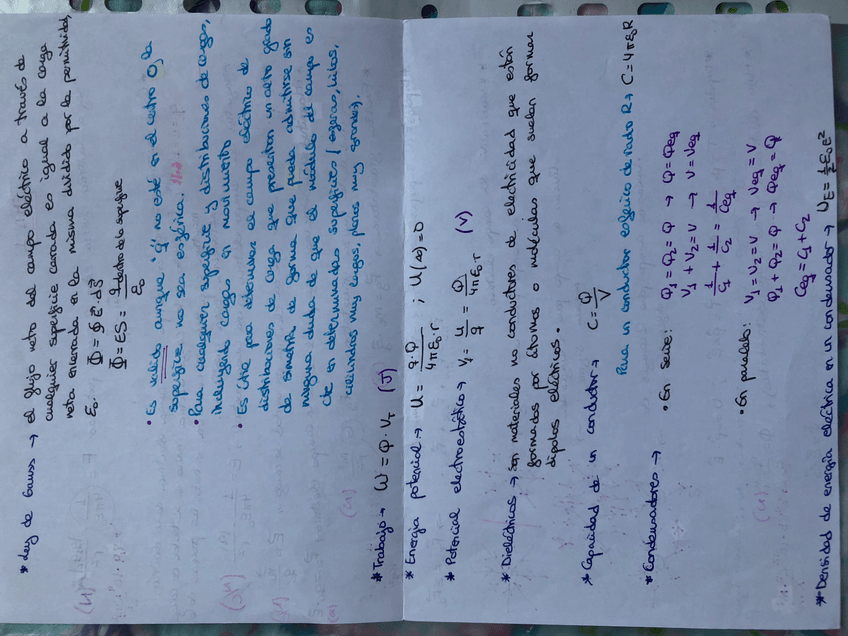 * Ley de Gauss → el flujo neto del campo eléctrico a través de
cualquier superficie cerrada es igual a la carga
neta encerrada en la misma dividido por la permitividad,
ε₀.
Φ = ∮ E⃗·dS⃗
Φ = ES = q dentro de la superficie / ε₀
• Es valido aunque "q" no esté en el centro O, la
superficie no sea esférica.
• Para cualquier superficie y distribuciones de cargas,
incluyendo cargas en movimiento
• Es útil para determinar el campo eléctrico de
distribuciones de carga que presenten un alto grado
de simetría de forma que pueda admitirse sin
ninguna duda de que el módulo del campo es
cte en determinadas superficies (esferas, hilos,
cilindros muy largos, planos muy grandes).
* Trabajo → W = Q · V_T (J)
* Energía potencial → U = q·Q / 4πε₀·r ; U(∞) = 0
* Potencial electroestático → V₁ = U/q = Q / 4πε₀·r (V)
* Dieléctricos → son materiales no conductores de electricidad que están
formados por átomos o moléculas que suelen formar
dipolos eléctricos.
* Capacidad de un conductor → C = Q/V
Para un conductor esférico de radio R → C = 4πε₀R
* Condensadores →
• En serie: Q₁ = Q₂ = Q → Q = Qeq
V₁ + V₂ = V → V = Veq
1/C₁ + 1/C₂ = 1/Ceq
• En paralelo: V₁ = V₂ = V → Veq = V
Q₁ + Q₂ = Q → Qeq = Q
Ceq = C₁ + C₂
* Densidad de energía eléctrica en un condensador → U_E = ½ ε₀ E²